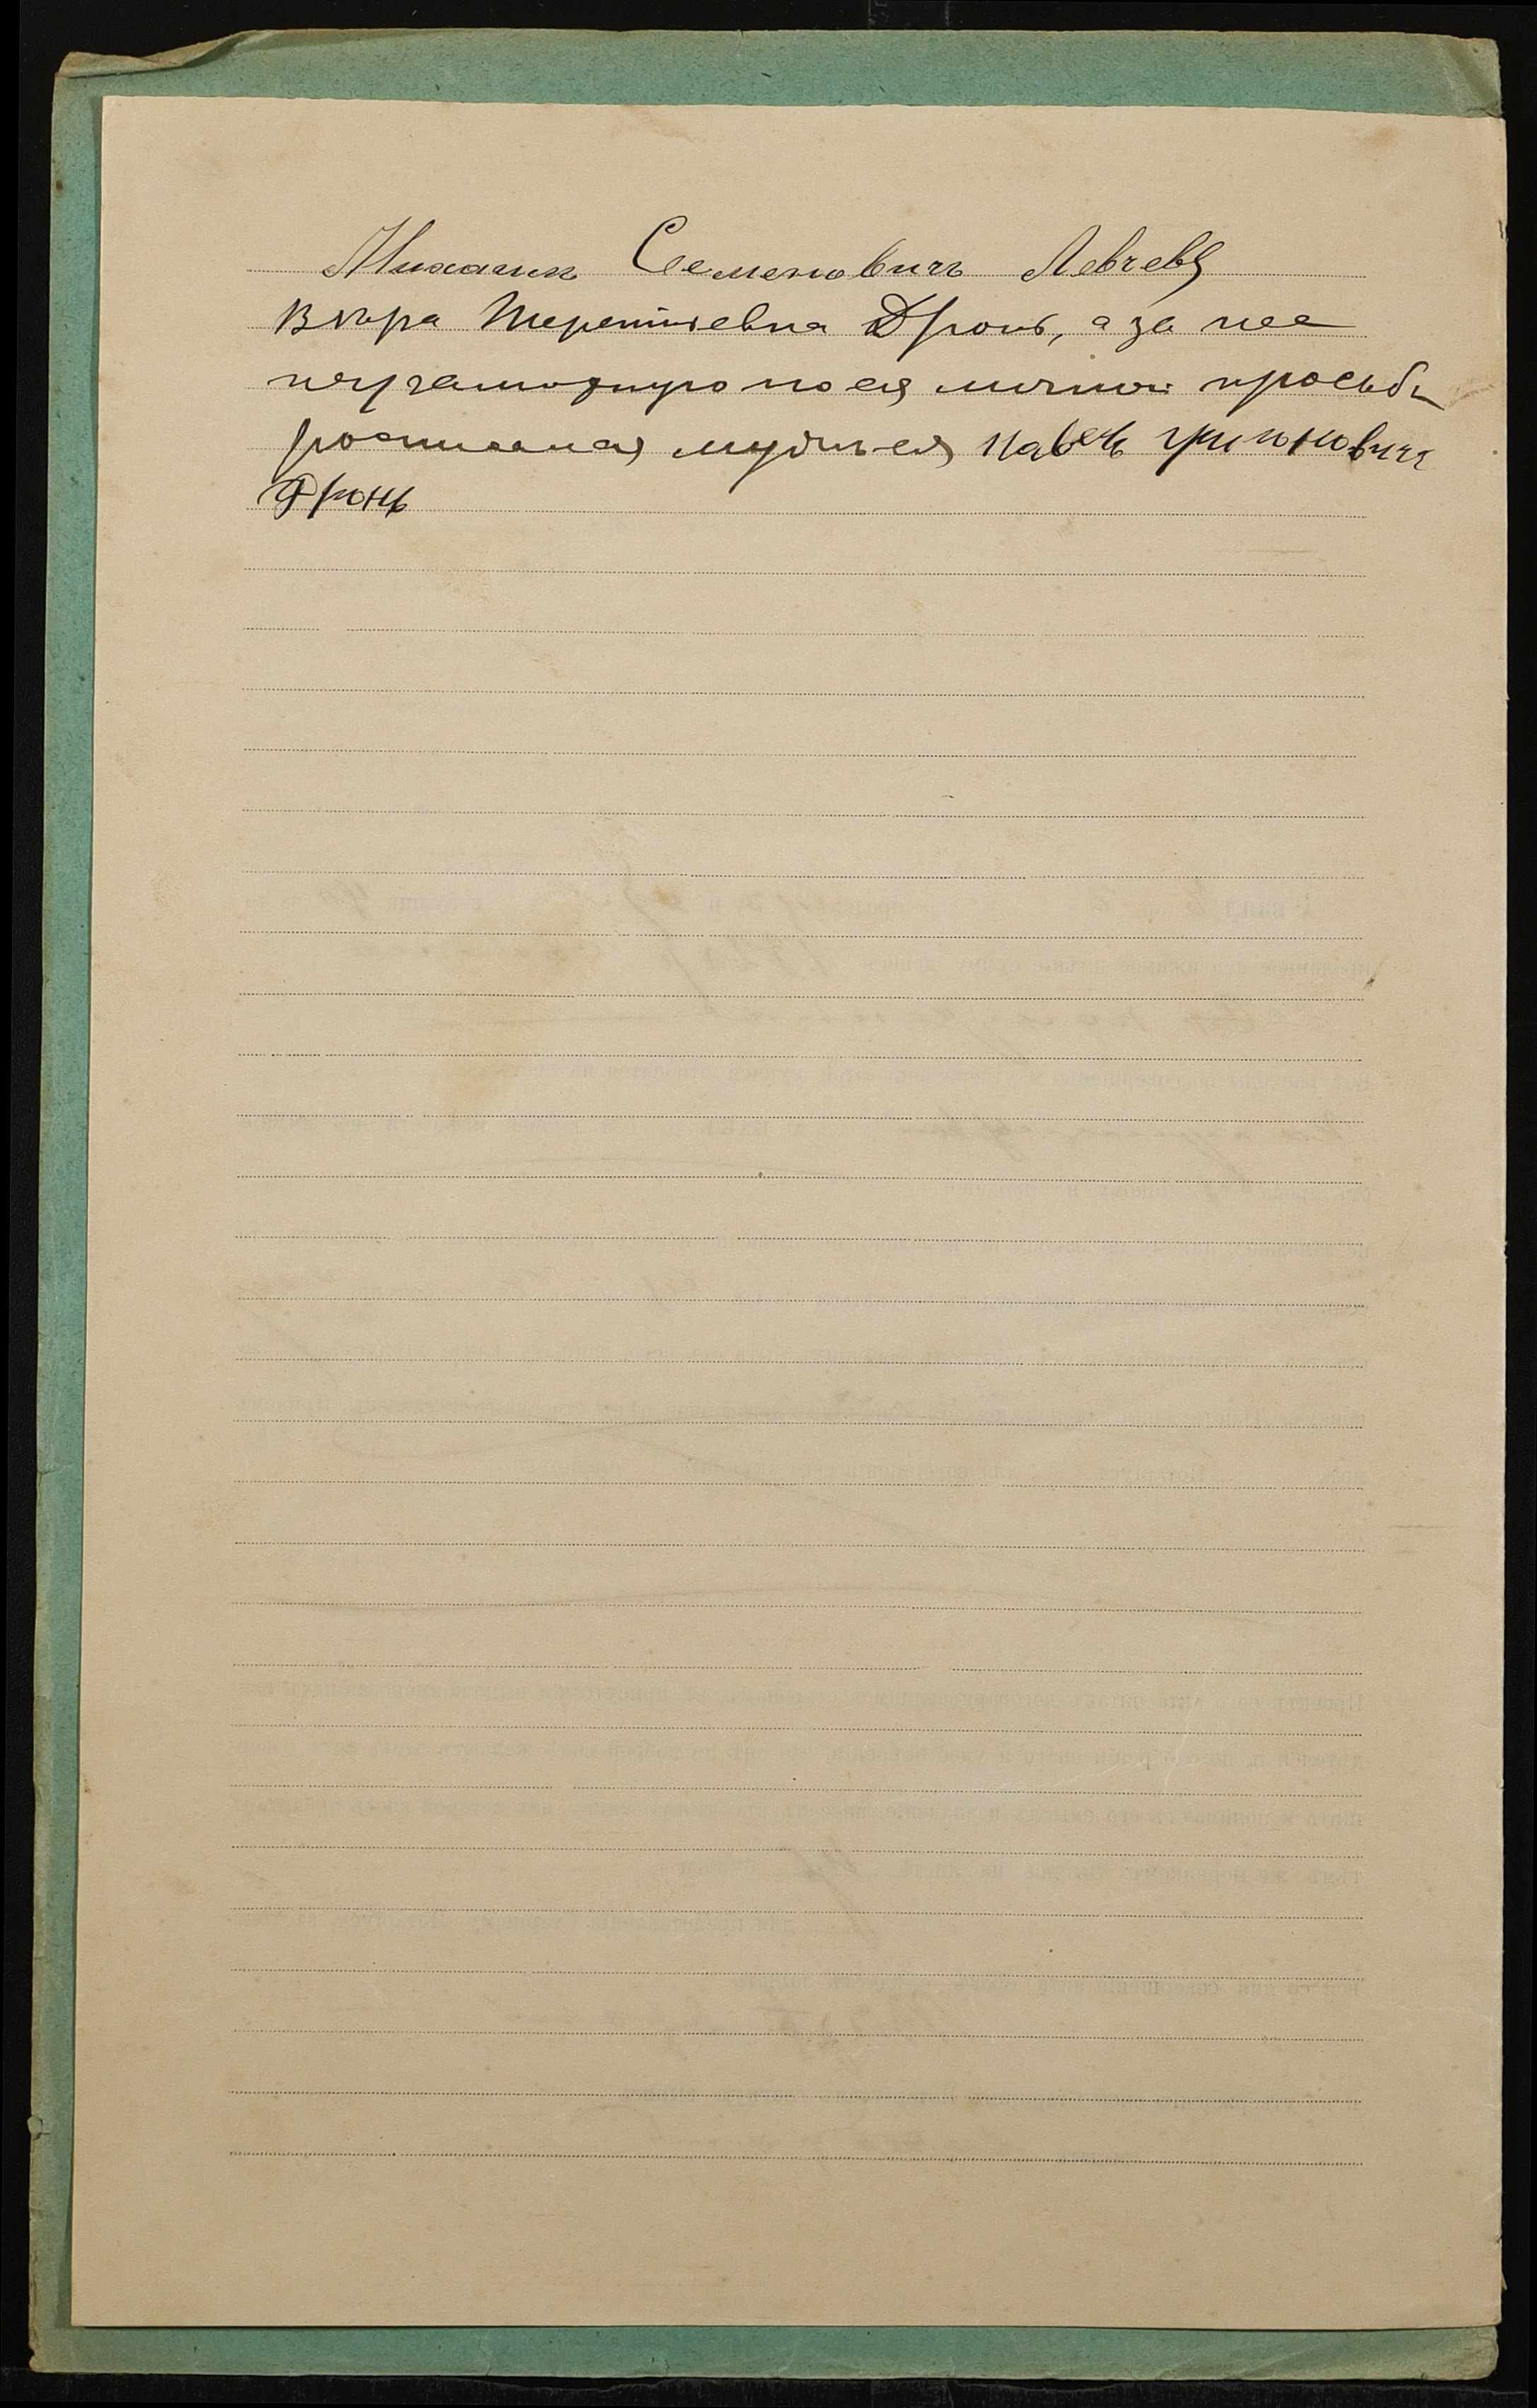 Михаилъ Семеновичъ Левчевъ
Вѣра Терентіевна Дронь, а за нее
неграмотную по ея личной просьбѣ
росписался мужъ ея Павелъ
Дронь